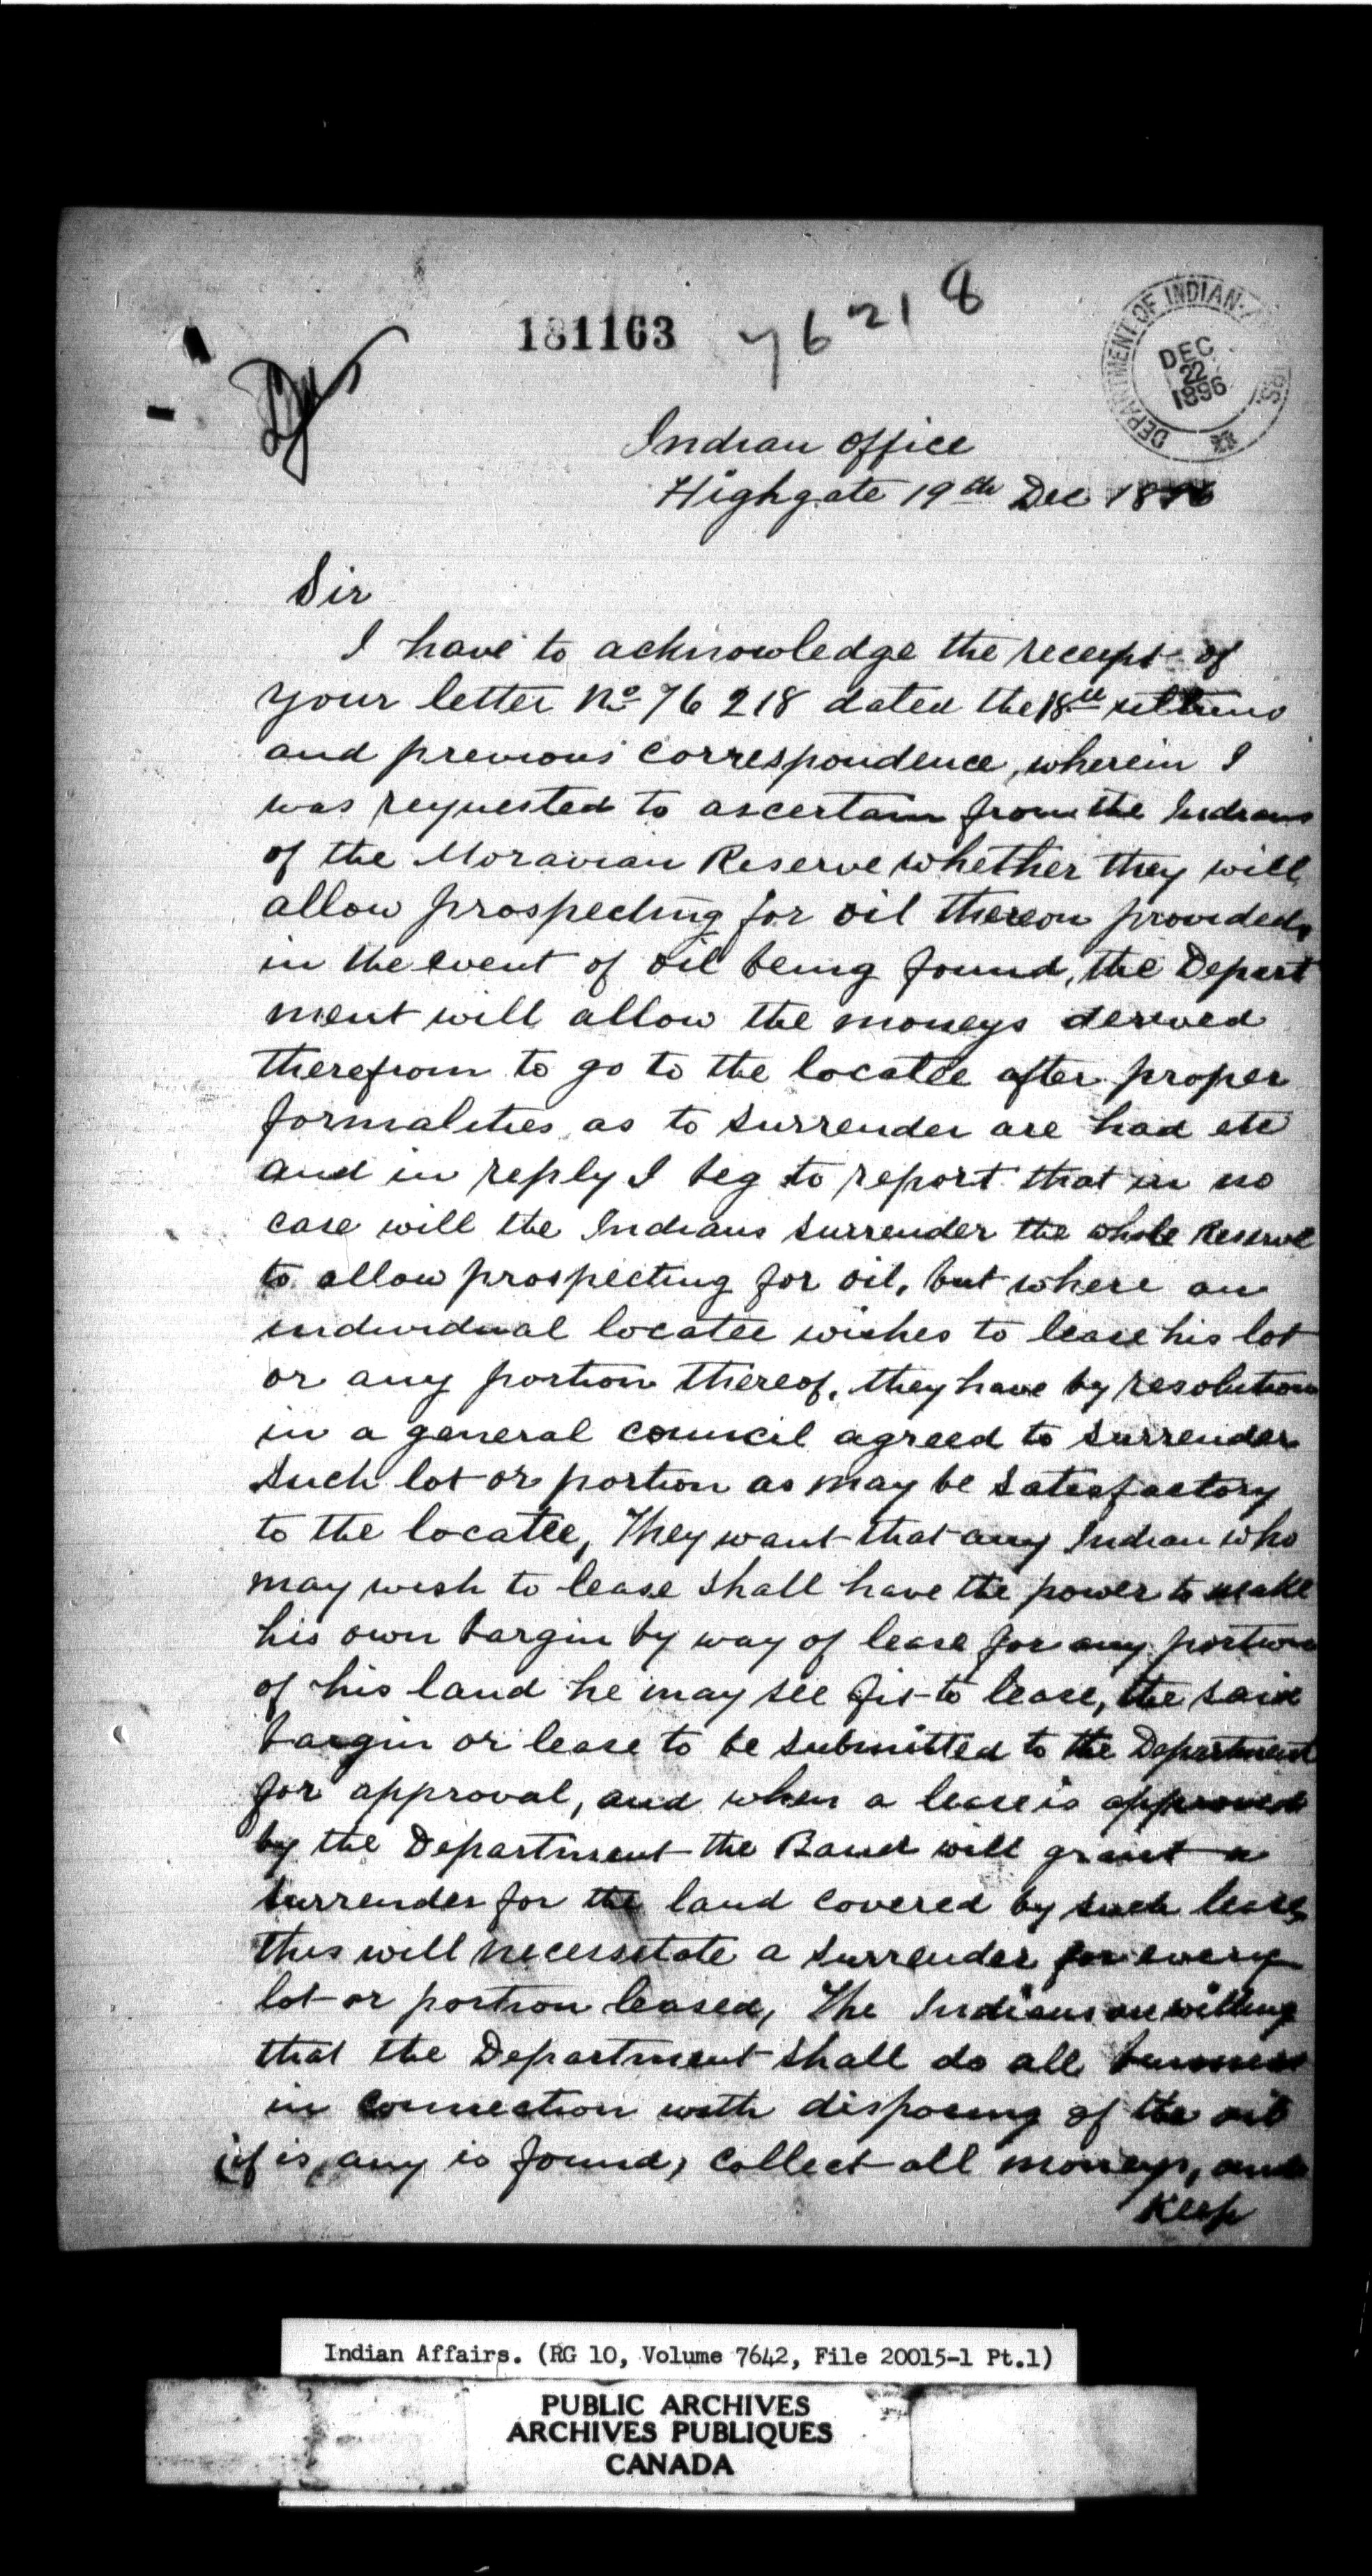 181163
76218
DEPARTMENT OF INDIAN
DEC
22
1896
Indian Office
Highgate 19th Dec 1896
Sir
I have to acknowledge the receipt of
your letter No 76218 dated the 18th ultimo
and previous correspondence, wherein I
was requested to ascertain from the Indians
of the Moravian Reserve whether they will
allow prospecting for oil thereon provided,
in the event of oil being found, the Depart
ment will allow the moneys derived
therefrom to go to the locatee after proper
formalities as to surrender are had etc
and in reply I beg to report that in no
case will the Indians surrender the whole Reserve
to allow prospecting for oil, but where an
individual locatee wishes to lease his lot
or any portion thereof, they have by resolution
in a general council agreed to surrender
such lot or portion as may be satisfactory
to the locatee, They want that any Indian who
may wish to lease shall have the power to make
his own bargin by way of lease for any portion
of his land he may see fit to lease, the said
bargin or lease to be submitted to the Department
for approval, and when a lease is approved
by the Department the Band will grant a
surrender for the land covered by such lease,
this will necessitate a surrender for every
lot or portion leased, The Indians are willing
that the Department shall do all business
in connection with disposing of the oil
if is any is found, collect all moneys, and
Keep
Indian Affairs. (RG 10, Volume 7642, File 20015-1 Pt.1)
PUBLIC ARCHIVES
ARCHIVES PUBLIQUES
CANADA